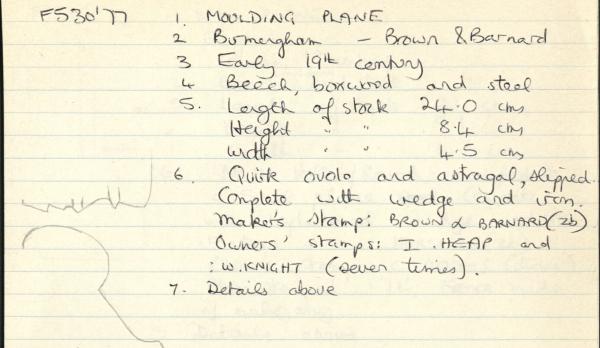 FS30'77 1. MOULDING PLANE
2 Birmingham - Brown & Barnard
3 Early 19th century
4 Beech, boxwood and steel
5. Length of stock 24.0 cms
Height " " 8.4 cms
width " " 4.5 cms
6. Quirk ovolo and astragal, slipped.
Complete with wedge and iron.
Maker's stamp: BROWN & BARNARD (2b)
Owners' stamps: I. HEAP and
: W. KNIGHT (seven times).
7. Details above